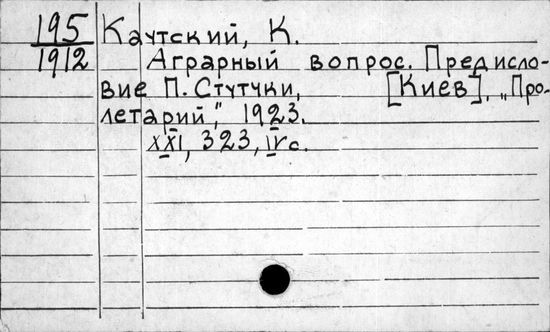 195 Каутский, К.
1912 Аграрный вопрос. Предисло-
вие П. Стутчки, [Киев], „Про-
летарий," 1923.
XXI, 323, IV с.